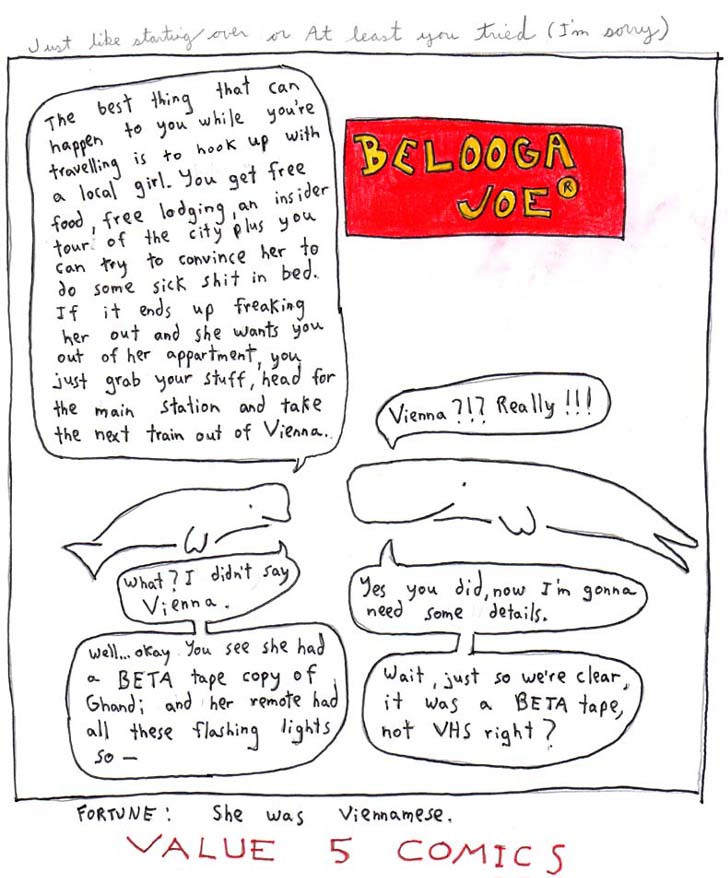 Just like starting over or At least you tried (I'm sorry)
The best thing that can
happen to you while you're
travelling is to hook up with
a local girl. You get free
food, free lodging, an insider
tour of the city plus you
can try to convince her to
do some sick shit in bed.
If it ends up freaking
her out and she wants you
out of her appartment, you
just grab your stuff, head for
the main station and take
the next train out of Vienna..
BELOOGA
JOE®
Vienna ?!? Really !!!
What? I didn't say
Vienna.
Yes you did, now I'm gonna
need some details.
Well... okay. You see she had
a BETA tape copy of
Ghandi and her remote had
all these flashing lights
so —
Wait, just so we're clear,
it was a BETA tape,
not VHS right?
FORTUNE: She was Viennamese.
VALUE 5 COMICS